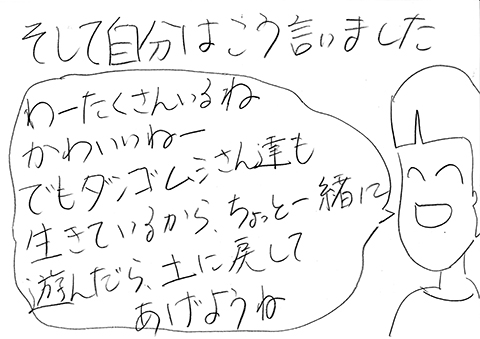 そして自分はこう言いました
わーたくさんいるね
かわいいねー
でもダンゴムシさん達も
生きているから、ちょっと一緒に
遊んだら、土に戻して
あげようね